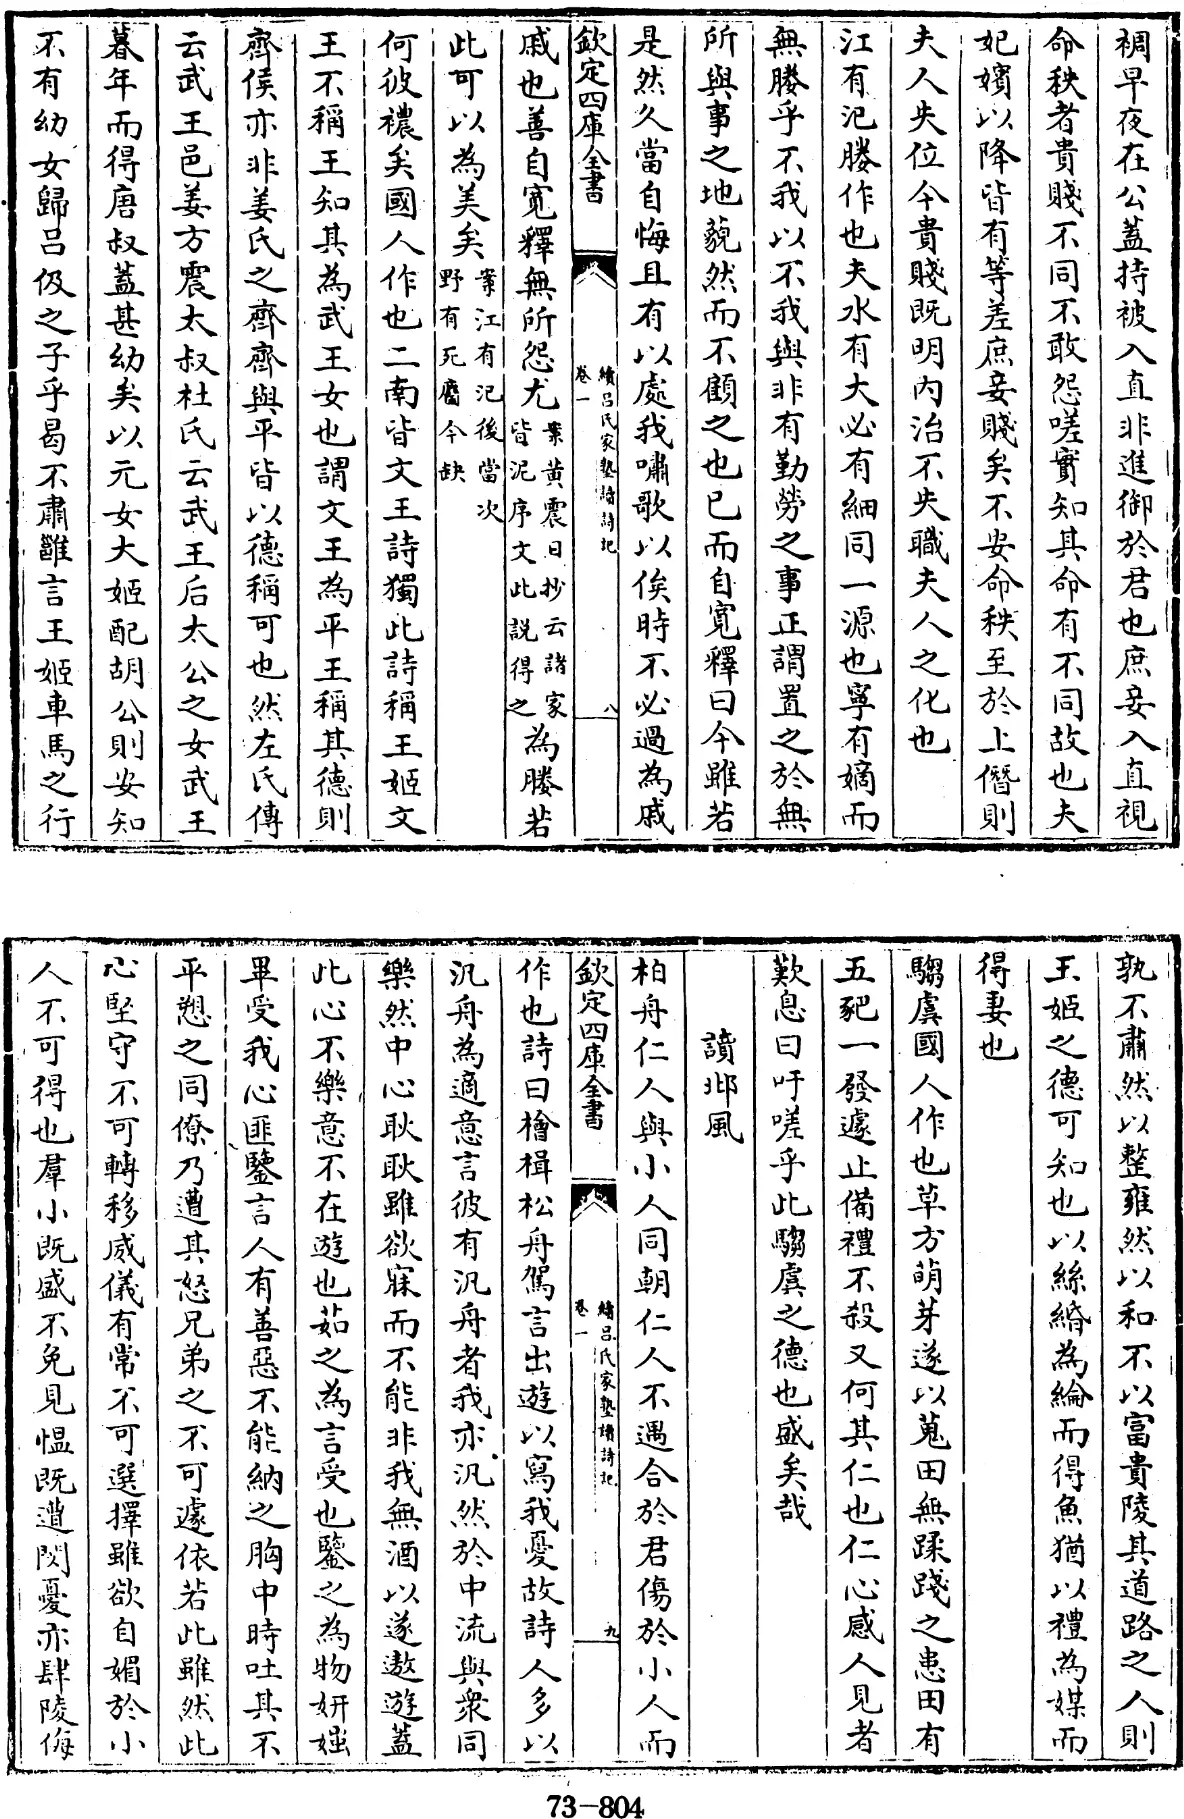 裯早夜在公蓋持被入直非進御於君也庶妾入直視
命秩者貴賤不同不敢怨嗟實知其命有不同故也夫
妃嬪以降皆有等差庶妾賤矣不安命秩至於上僭則
夫人失位今貴賤既明内治不失職夫人之化也
江有汜媵作也夫水有大必有細同一源也寧有嫡而
無媵乎不我以不我與非有勤勞之事正謂置之於無
所與事之地藐然而不顧之也已而自寬釋曰今雖若
是然久當自悔且有以處我嘯歌以俟時不必過為戚
欽定四庫全書
續吕氏家塾讀詩記
卷一
八
戚也善自寬釋無所怨尤案黄震日抄云諸家為媵若
皆泥序文此説得之
此可以為美矣案江有汜後當次
野有死麕今缺
何彼襛矣國人作也二南皆文王詩獨此詩稱王姬文
王不稱王知其為武王女也謂文王為平王稱其德則
齊侯亦非姜氏之齊齊與平皆以德稱可也然左氏傳
云武王邑姜方震太叔杜氏云武王后太公之女武王
暮年而得唐叔蓋甚幼矣以元女大姬配胡公則安知
不有幼女歸吕伋之子乎曷不肅雝言王姬車馬之行
孰不肅然以整雍然以和不以富貴陵其道路之人則
王姬之德可知也以絲緡為綸而得魚猶以禮為媒而
得妻也
騶虞國人作也草方萌芽遂以蒐田無蹂踐之患田有
五豝一發遽止備禮不殺又何其仁也仁心感人見者
歎息曰吁嗟乎此騶虞之德也盛矣哉
讀邶風
柏舟仁人與小人同朝仁人不遇合於君傷於小人而
欽定四庫全書
續吕氏家塾讀詩記
卷一
九
作也詩曰檜楫松舟駕言出遊以寫我憂故詩人多以
汎舟為適意言彼有汎舟者我亦汎然於中流與衆同
樂然中心耿耿雖欲寐而不能非我無酒以遂遨遊蓋
此心不樂意不在遊也茹之為言受也鑒之為物妍媸
畢受我心匪鑒言人有善惡不能納之胸中時吐其不
平愬之同僚乃遭其怒兄弟之不可遽依若此雖然此
心堅守不可轉移威儀有常不可選擇雖欲自媚於小
人不可得也羣小既盛不免見愠既遭閔憂亦肆陵侮
73-804